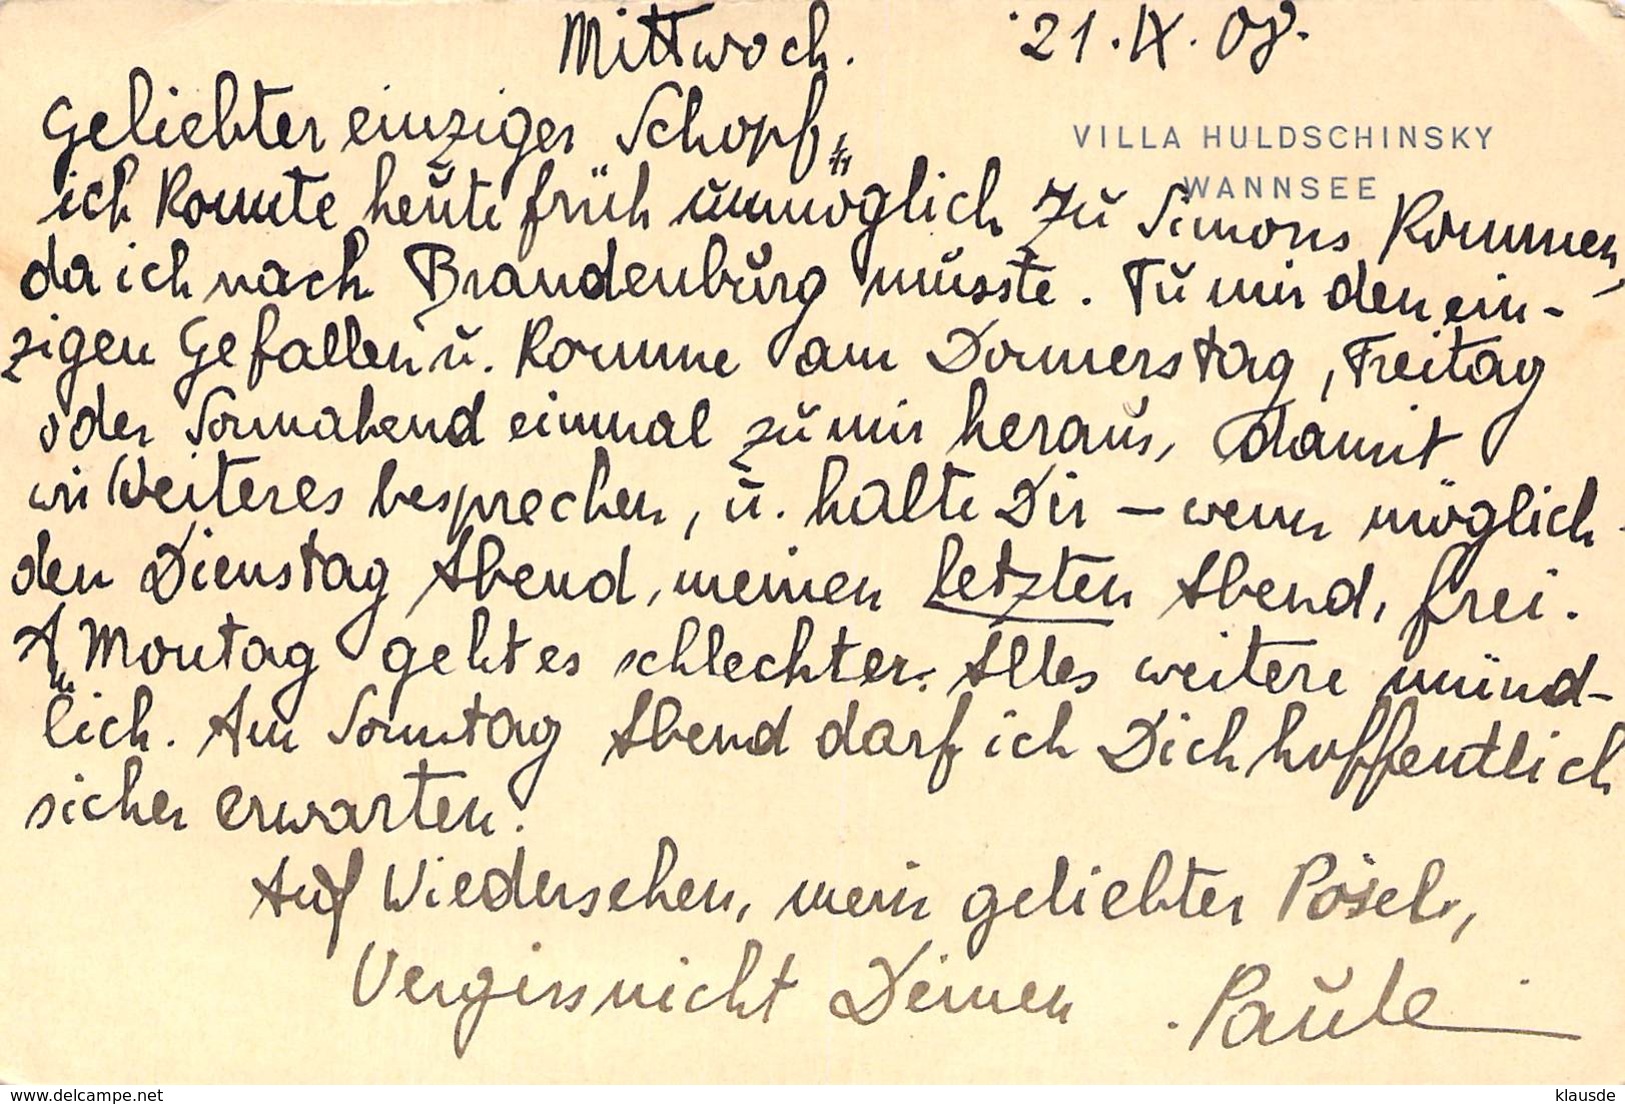 Mittwoch. 21.IX.08.
VILLA HULDSCHINSKY
WANNSEE
Geliebter einziger Schopf,
ich konnte heute früh unmöglich zu Simons kommen,
da ich nach Brandenburg musste. Tu mir den ein-
zigen Gefallen u. komme am Donnerstag, Freitag
oder Sonnabend einmal zu mir heraus, damit
wir Weiteres besprechen, u. halte Dir – wenn möglich –
den Dienstag Abend, meinen letzten Abend, frei.
Am Montag geht es schlechter. Alles weitere münd-
lich. Am Sonntag Abend darf ich Dich hoffentlich
sicher erwarten.
Auf Wiedersehen, mein geliebter
Vergiss nicht Deinen Paule
www.delcampe.net
klausde